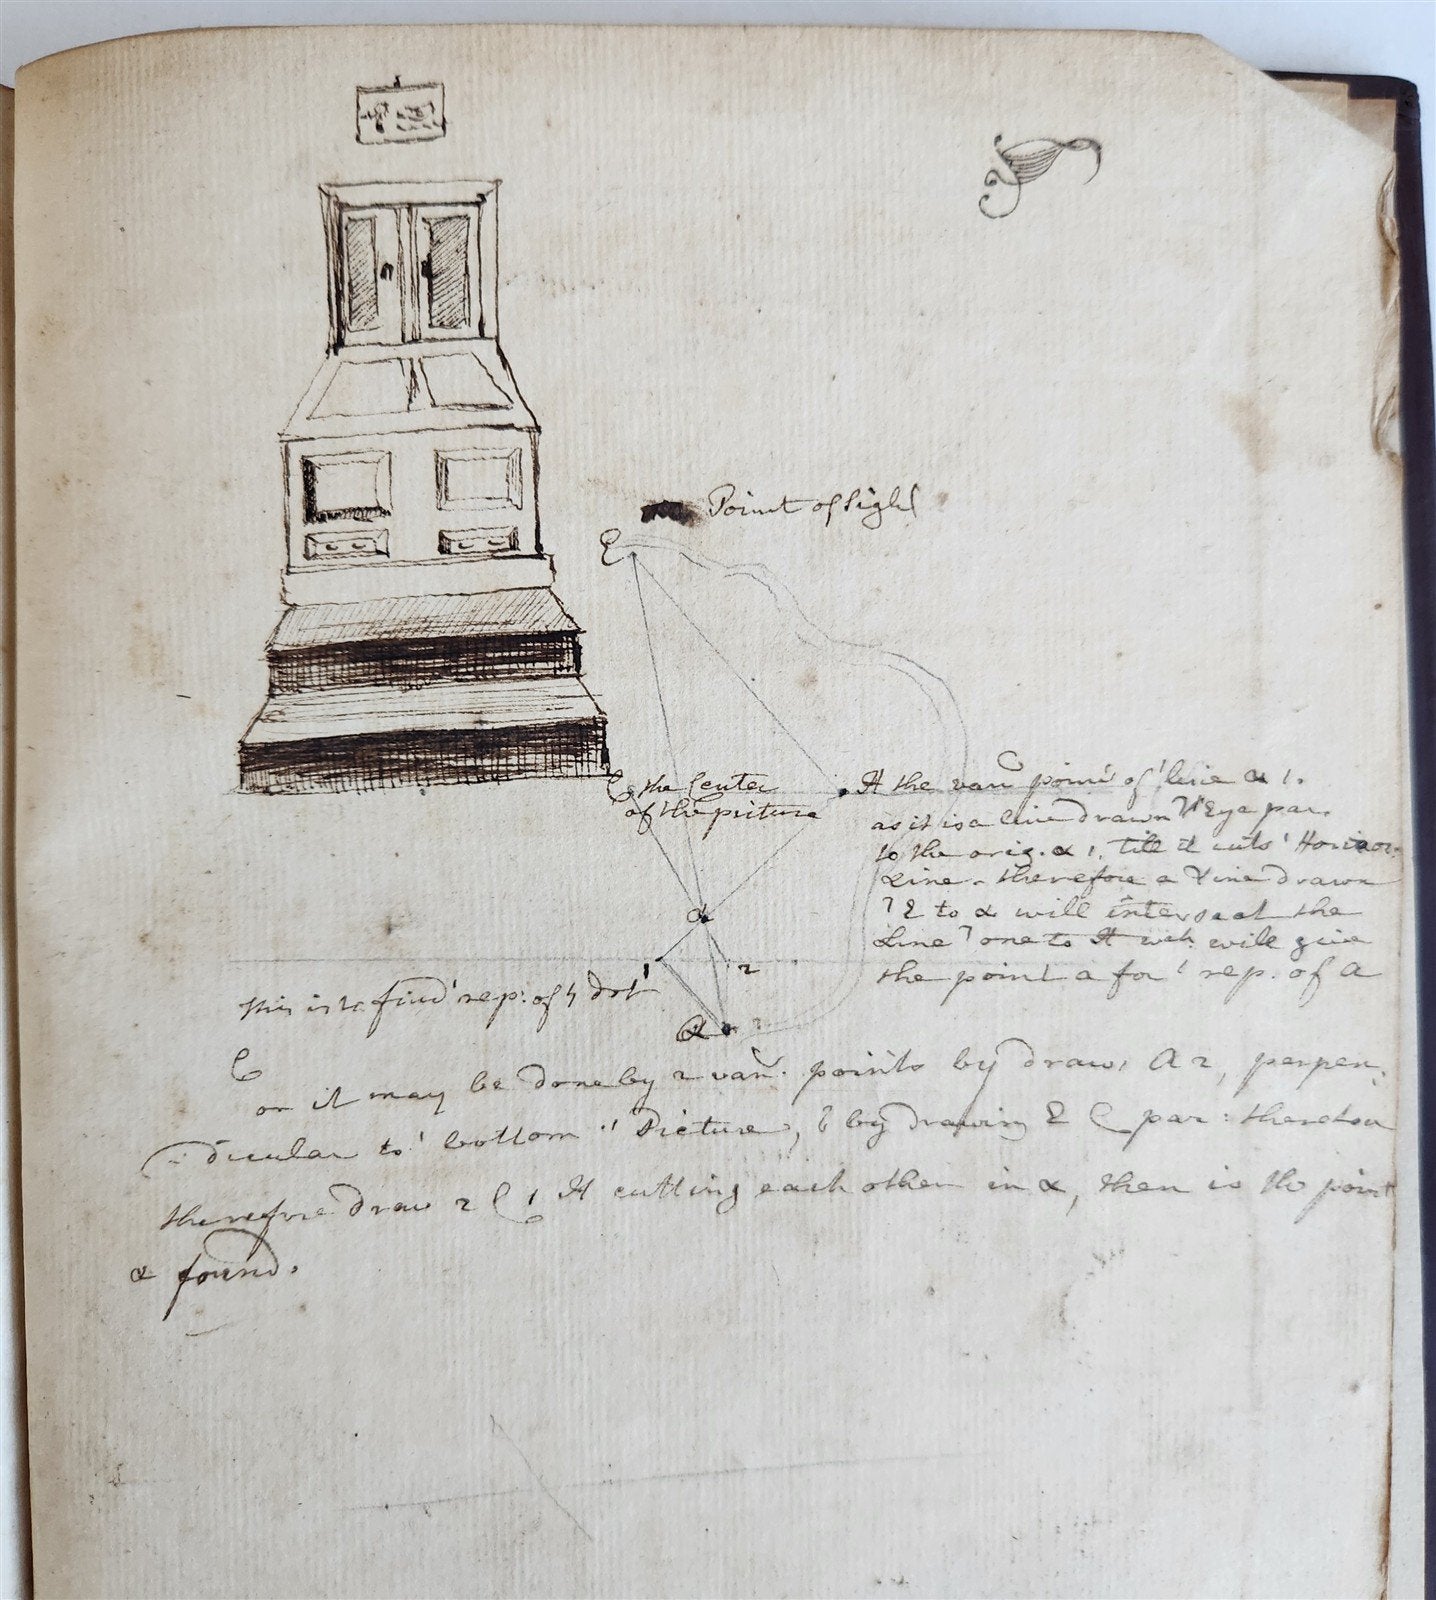 Point of Sight
E
C the Center
of the picture
A the van point of line a 1.
as it is a line drawn Eye par.
to the orig. a 1. till it cuts ' Horizon
Line. therefore a line drawn
E to a will intersect the
Line one to A wch. will give
the point a for ' rep. of a
a
1 2
this is to find ' rep: of
a
or it may be done by 2 van. points by draw, a 2, perpen:
dicular to ' bottom ' Picture, & by drawing E C par: thereto
therefore draw 2 C, 1 A cutting each other in a, then is the point
a found.